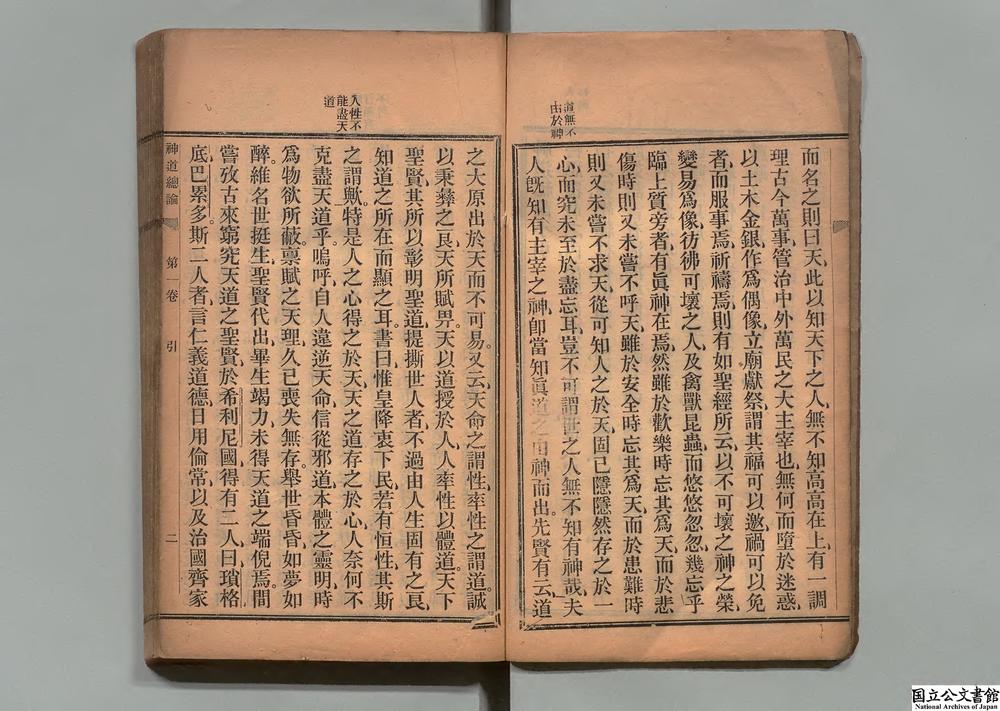 道無不
由於神
而名之則曰天此以知天下之人無不知高高在上有一調
理古今萬事管治中外萬民之大主宰也無何而墮於迷惑
以土木金銀作爲偶像立廟獻祭謂其福可以邀禍可以免
者而服事焉祈禱焉則有如聖經所云以不可壞之神之榮
變易爲像彷彿可壞之人及禽獸昆蟲而悠悠忽忽幾忘乎
臨上質旁者有眞神在焉然雖於歡樂時忘其爲天而於悲
傷時則又未嘗不呼天雖於安全時忘其爲天而於患難時
則又未嘗不求天從可知人之於天固已隱隱然存之於一
心而究未至於盡忘耳豈不可謂世之人無不知有神哉夫
人旣知有主宰之神卽當知眞道之由神而出先賢有云道
人性不
能盡天
道
之大原出於天而不可易又云天命之謂性率性之謂道誠
以秉彝之良天所賦畀天以道授於人人率性以體道天下
聖賢其所以彰明聖道提撕世人者不過由人生固有之良
知道之所在而顯之耳書曰惟皇降衷下民若有恒性其斯
之謂歟特是人之心得之於天天之道存之於心人奈何不
克盡天道乎嗚呼自人違逆天命信從邪道本體之靈明時
爲物欲所蔽禀賦之天理久已喪失無存舉世昏昏如夢如
醉維名世挺生聖賢代出畢生竭力未得天道之端倪焉間
嘗攷古來窮究天道之聖賢於希利尼國得有二人曰瑣格
底巴累多斯二人者言仁義道德日用倫常以及治國齊家
神道總論 第一卷 引 二
国立公文書館
National Archives of Japan